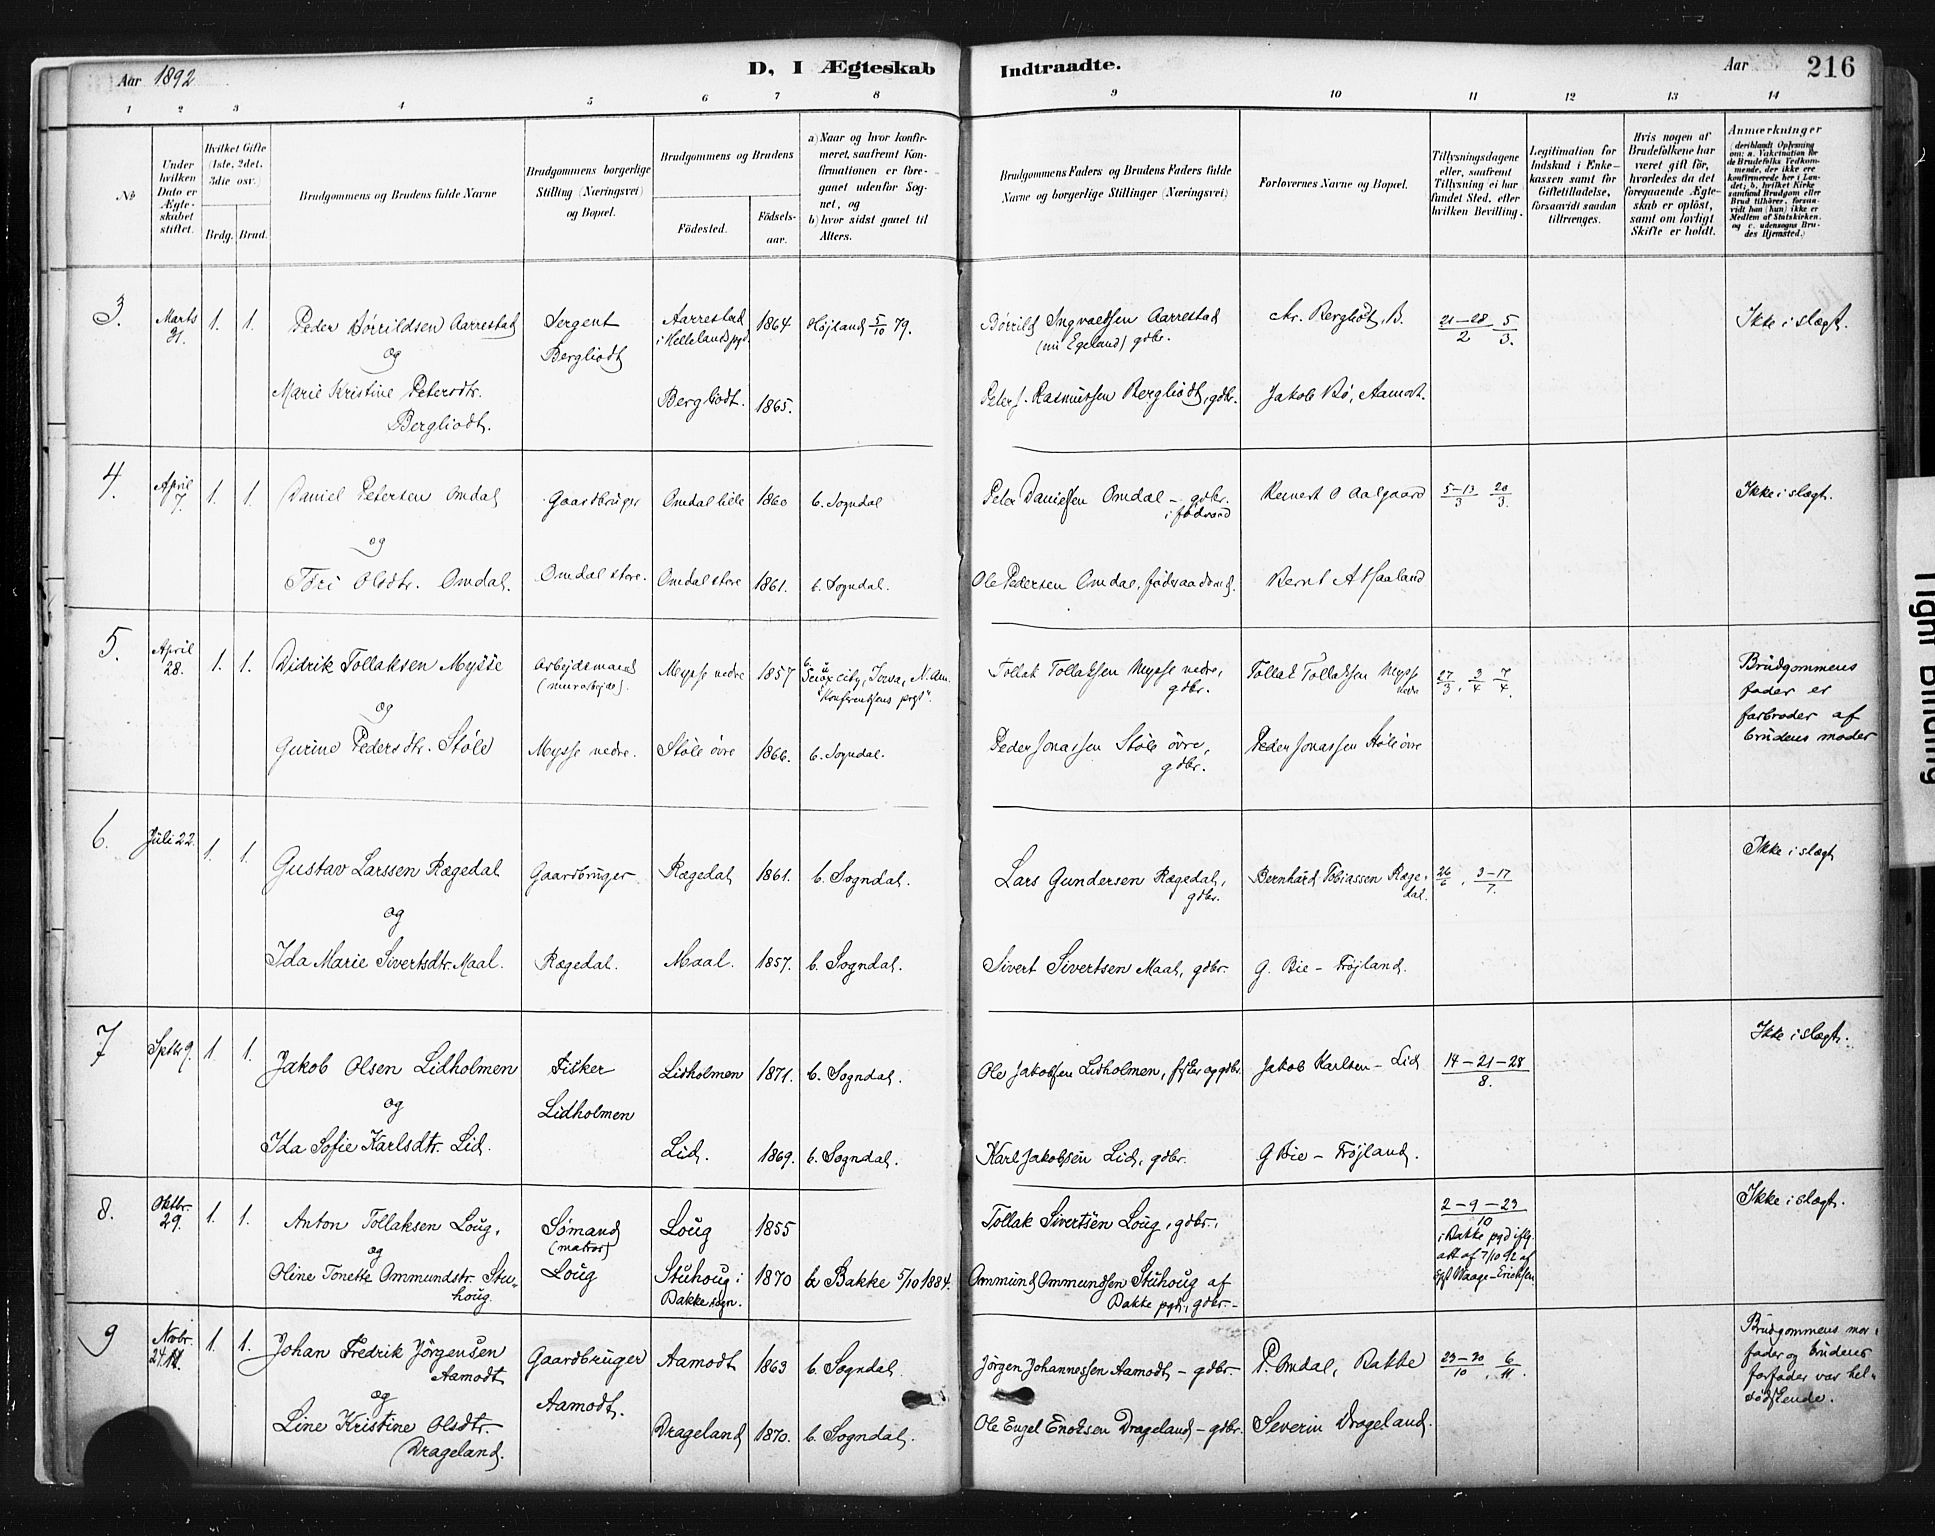 Aar 1892
D, I Ægteskab
Indtraadte.
Aar
216
1 2 3 4 5 6 7 8 9 10 11 12 13 14
No
Under
hvilken
Dato er
Ægte-
skabet
stiftet.
Hvilket Gifte
(1ste, 2det,
3die osv.)
Brdg. Brud.
Brudgommens og Brudens fulde Navne
Brudgommens borgerlige
Stilling (Næringsvei)
og Bopæl.
Brudgommens og Brudens
Fødested.
Fødsels-
aar.
a) Naar og hvor konfir-
meret, saafremt Kon-
firmationen er fore-
gaaet udenfor Sog-
net, og
b) hvor sidst gaaet til
Alters.
Brudgommens Faders og Brudens Faders fulde
Navne og borgerlige Stillinger (Næringsvei)
Forlovernes Navne og Bopæl.
Tillysningsdagene
eller, saafremt
Tillysning ei har
fundet Sted, efter
hvilken Bevilling.
Legitimation for
Indskud i Enke-
kassen samt for
Giftetilladelse,
forsaavidt saadan
tiltrænges.
Hvis nogen af
Brudefolkene har
været gift før,
hvorledes da det
foregaaende Ægte-
skab er opløst,
samt om lovligt
Skifte er holdt.
Anmerkninger
(deriblandt Oplysning
om: a. Vakcination for
de Brudefolks Vedkom-
mende, der ikke ere
konfirmerede her i Lan-
det; b. hvilket Kirke
samfund Brudgom eller
Brud tilhører, forsaa-
vidt han (hun) ikke er
Medlem af Statskirken,
og c. udensogns Bru-
des Hjemsted.)
3. Marts 31. 1. 1. Peder Børrildsen Aarrestad Sergent Aarrestad 1864 Højland 5/10 79. Børrild Ingvaldsen Aarrestad Chr. Bergliødt, B. 21-28/2 5/3. Ikke i slægt.
i Hellelands pgd.
(nu Egeland) gdbr.
og
Bergliødt
Marie Kristine Petersdtr. Bergliodt. 1865. Peter J. Rasmussen Bergliødt, gdbr. Jakob Bø, Aamodt.
Bergliodt.
4. April 7. 1. 1. Daniel Petersen Omdal Gaardbruger Omdal lille 1860 b. Sogndal Peter Danielsen Omdal – gdbr. Reinert O Aalgaard 5-13/3 20/3. Ikke i slægt.
i føderaad
og
Tori Olsdtr. Omdal. Omdal store. Omdal store 1861. b. Sogndal. Ole Pedersen Omdal, føderaadsmd. Bernt A Haaland
5. April 28. 1. 1. Didrik Tollaksen Mysse Arbejdsmand Mysse nedre 1857 b. Sioux city, Iowa, N. Am. Tollak Tollaksen Mysse nedre, Tollak Tollaksen Mysse 27/3, 3/4 7/4. Brudgommens
(murarbejde). "Konferentsens prgt". gdbr. nedre fader er
og
farbroder af
Gurine Pedersdtr. Støle Mysse nedre. Støle øvre 1866. b. Sogndal. Peder Jonassen Støle øvre, Peder Jonassen Støle øvre brudens moder
gdbr.
6. Juli 22. 1. 1. Gustav Larssen Rægedal Gaardbruger Rægedal 1861. b. Sogndal. Lars Gundersen Rægedal, Bernhard Tobiassen Ræge- 26/6, 3-17/7. Ikke i slægt
gdbr. dal.
og
Ida Marie Sivertsdtr. Maal. Rægedal. Maal. 1857. b. Sogndal. Sivert Sivertsen Maal, gdbr. G. Bie – Frøjland.
7 Sptbr 9. 1. 1. Jakob Olsen Lidholmen Fisker Lidholmen 1871. b. Sogndal. Ole Jakobsen Lidholmen, fisker og gdbr. Jakob Karlsen – Lid 14-21-28/8. Ikke i slægt.
og Lidholmen
Ida Sofie Karlsdtr. Lid. Lid. 1869. b. Sogndal. Karl Jakobsen Lid, gdbr. G Bie – Frøjland.
8. Oktbr. 29. 1. 1. Anton Tollaksen Loug. Sømand Loug 1855 Tollak Sivertsen Loug, gdbr. 2-9-23/10 Ikke i slægt.
og (matros) i Bakke pgd iflg.
att af 7/10 92 af
Oline Tonette Ommundstr. Stu- Loug Stuhoug i 1870 b. Bakke 5/10 1884. Ommund Ommundsen Stuhoug af Waage-Erichsen
houg. Bakke sogn. Bakke pgd., gdbr. –
9 Novbr. 24. 1. 1. Johan Fredrik Jørgensen Gaardbruger Aamodt 1863 b. Sogndal. Jørgen Johannessen Aamodt – gdbr. P. Omdal, Bakke 23-30/10, 6/11. Brudgommens mor-
Aamodt fader og brudens
og Aamodt. farfader var hel-
Line Kristine Olsdtr. Drageland 1870. b. Sogndal. Ole Engel Enoksen Drageland – gdbr. Severin Drageland. sødskende.
Drageland.
Tight Binding